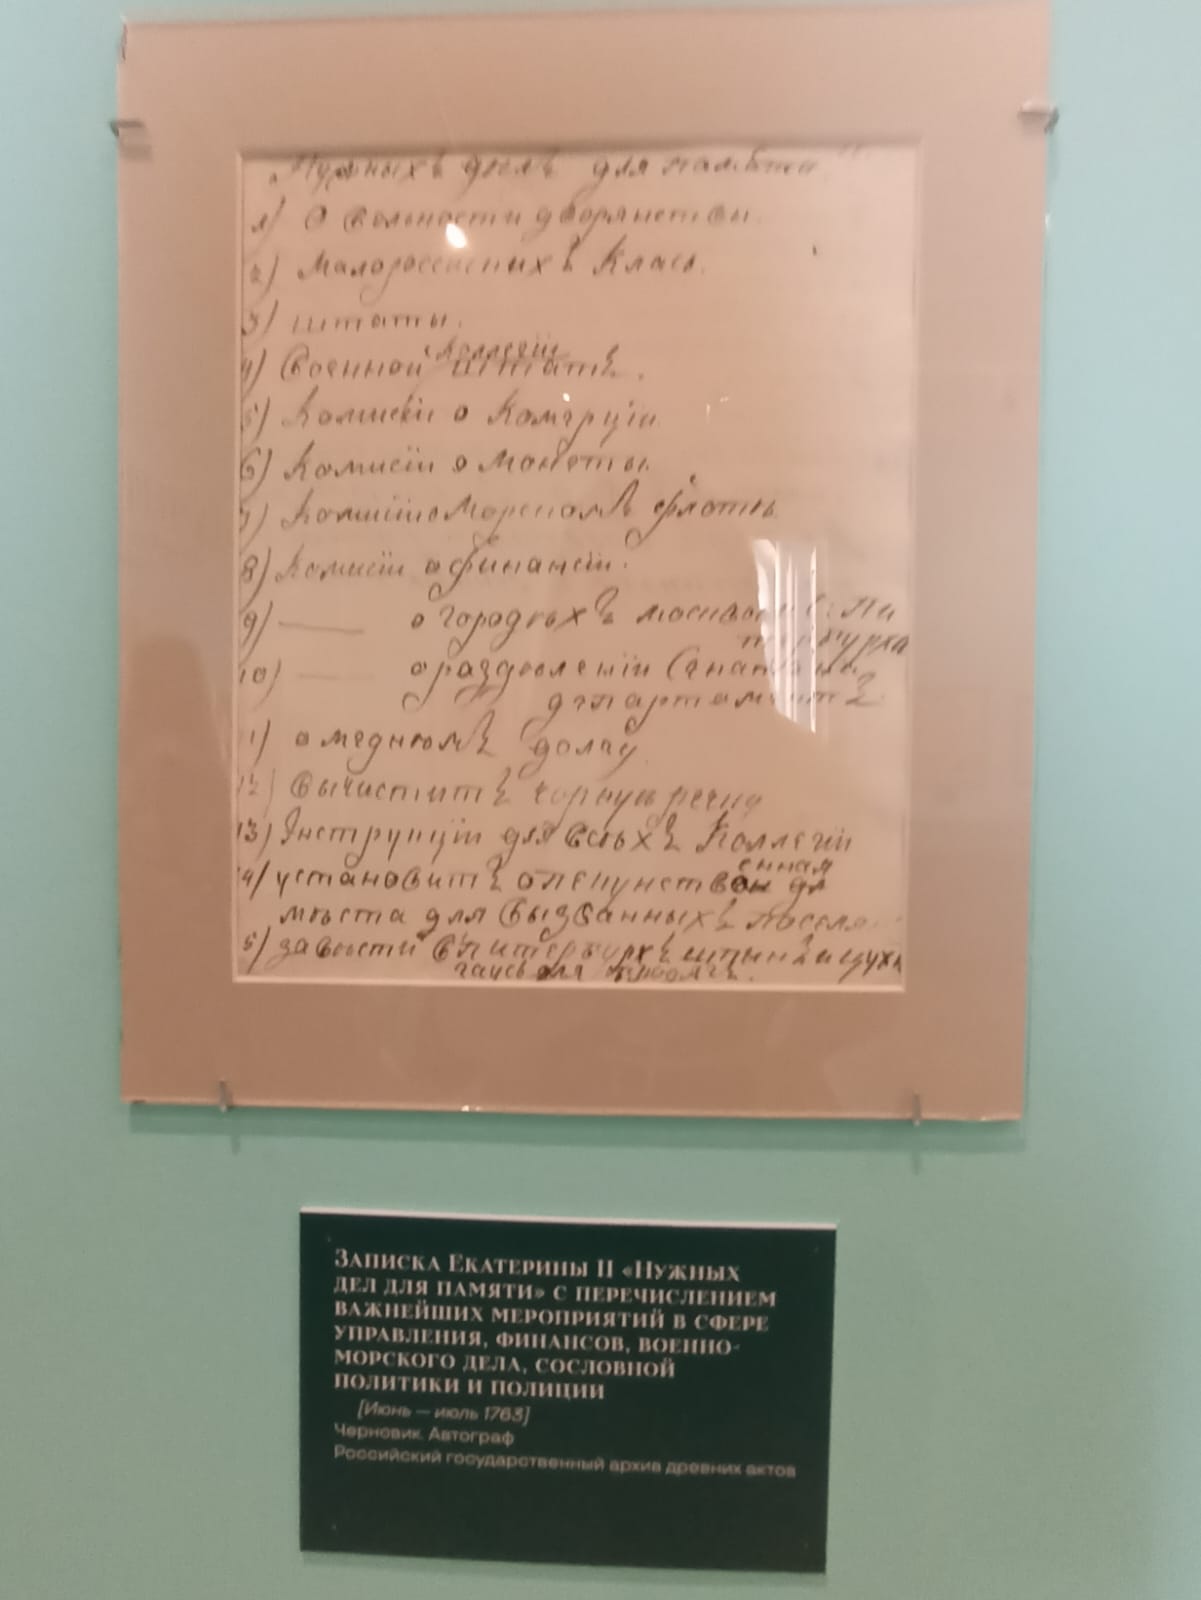 „Нужныхъ делъ для памети"
1) О вольности дворянствы.
2) Малоросси
3) штаты.
4) Военной Коллегiи штатъ.
5) Комисiи о Комерцiи
6) Комисiи о монеты.
7) Комисiи о Морскомъ флоты
8) Комисiи о финансiи.
9) —— о городѣхъ
10) —— о раздѣленiи
департаментъ
11) о меднемъ долгу
12) вычиститъ чорную речку
13) Инструкцiи для всѣхъ Коллегiи
14) установитъ
мѣста для вызванныхъ
15) завѣсти в Питербурхъ
ЗАПИСКА ЕКАТЕРИНЫ II «НУЖНЫХ
ДЕЛ ДЛЯ ПАМЯТИ» С ПЕРЕЧИСЛЕНИЕМ
ВАЖНЕЙШИХ МЕРОПРИЯТИЙ В СФЕРЕ
УПРАВЛЕНИЯ, ФИНАНСОВ, ВОЕННО-
МОРСКОГО ДЕЛА, СОСЛОВНОЙ
ПОЛИТИКИ И ПОЛИЦИИ
[Июнь — июль 1763]
Черновик. Автограф
Российский государственный архив древних актов